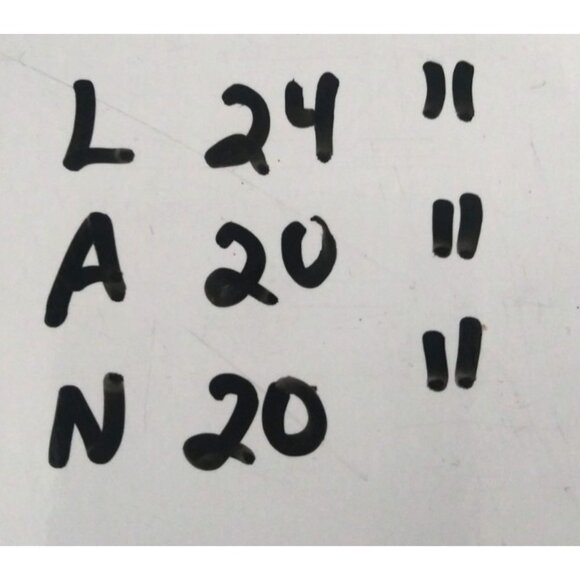 L 24 "
A 20 "
N 20 "